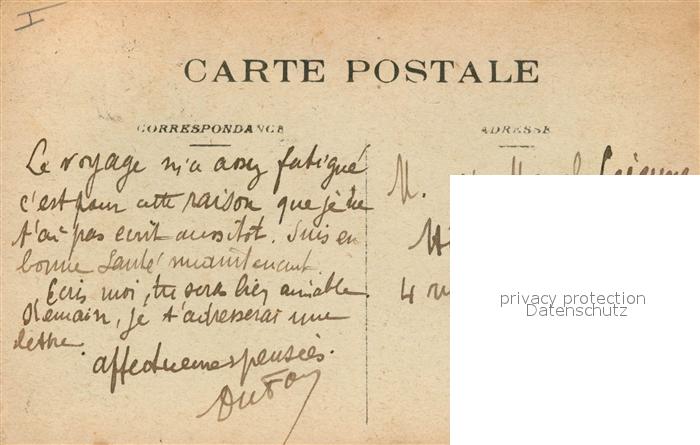 CARTE POSTALE
CORRESPONDANCE
ADRESSE
Le voyage m'a assez fatigué
c'est pour cette raison que je ne
t'ai pas ecrit aussitot. Suis en
bonne santé maintenant.
Ecris moi, tu seras bien aimable.
Demain, je t'adresserai une
lettre.
affectueuses pensées.
M.
4
privacy protection
Datenschutz